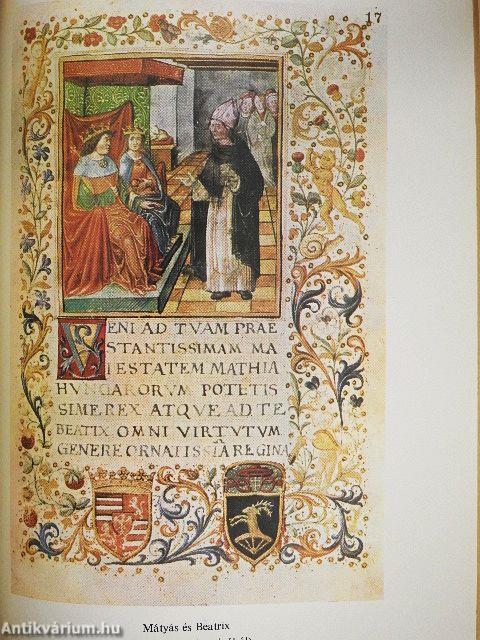 17
VENI AD TVAM PRAE
STANTISSIMAM MA
IESTATEM MATHIA
HUNGARORVM POTETIS
SIME REX ATQVE AD TE
BEATIX OMNI VIRTVTVM
GENERE ORNATISSIA REGINA
Mátyás és Beatrix
Antikvárium.hu